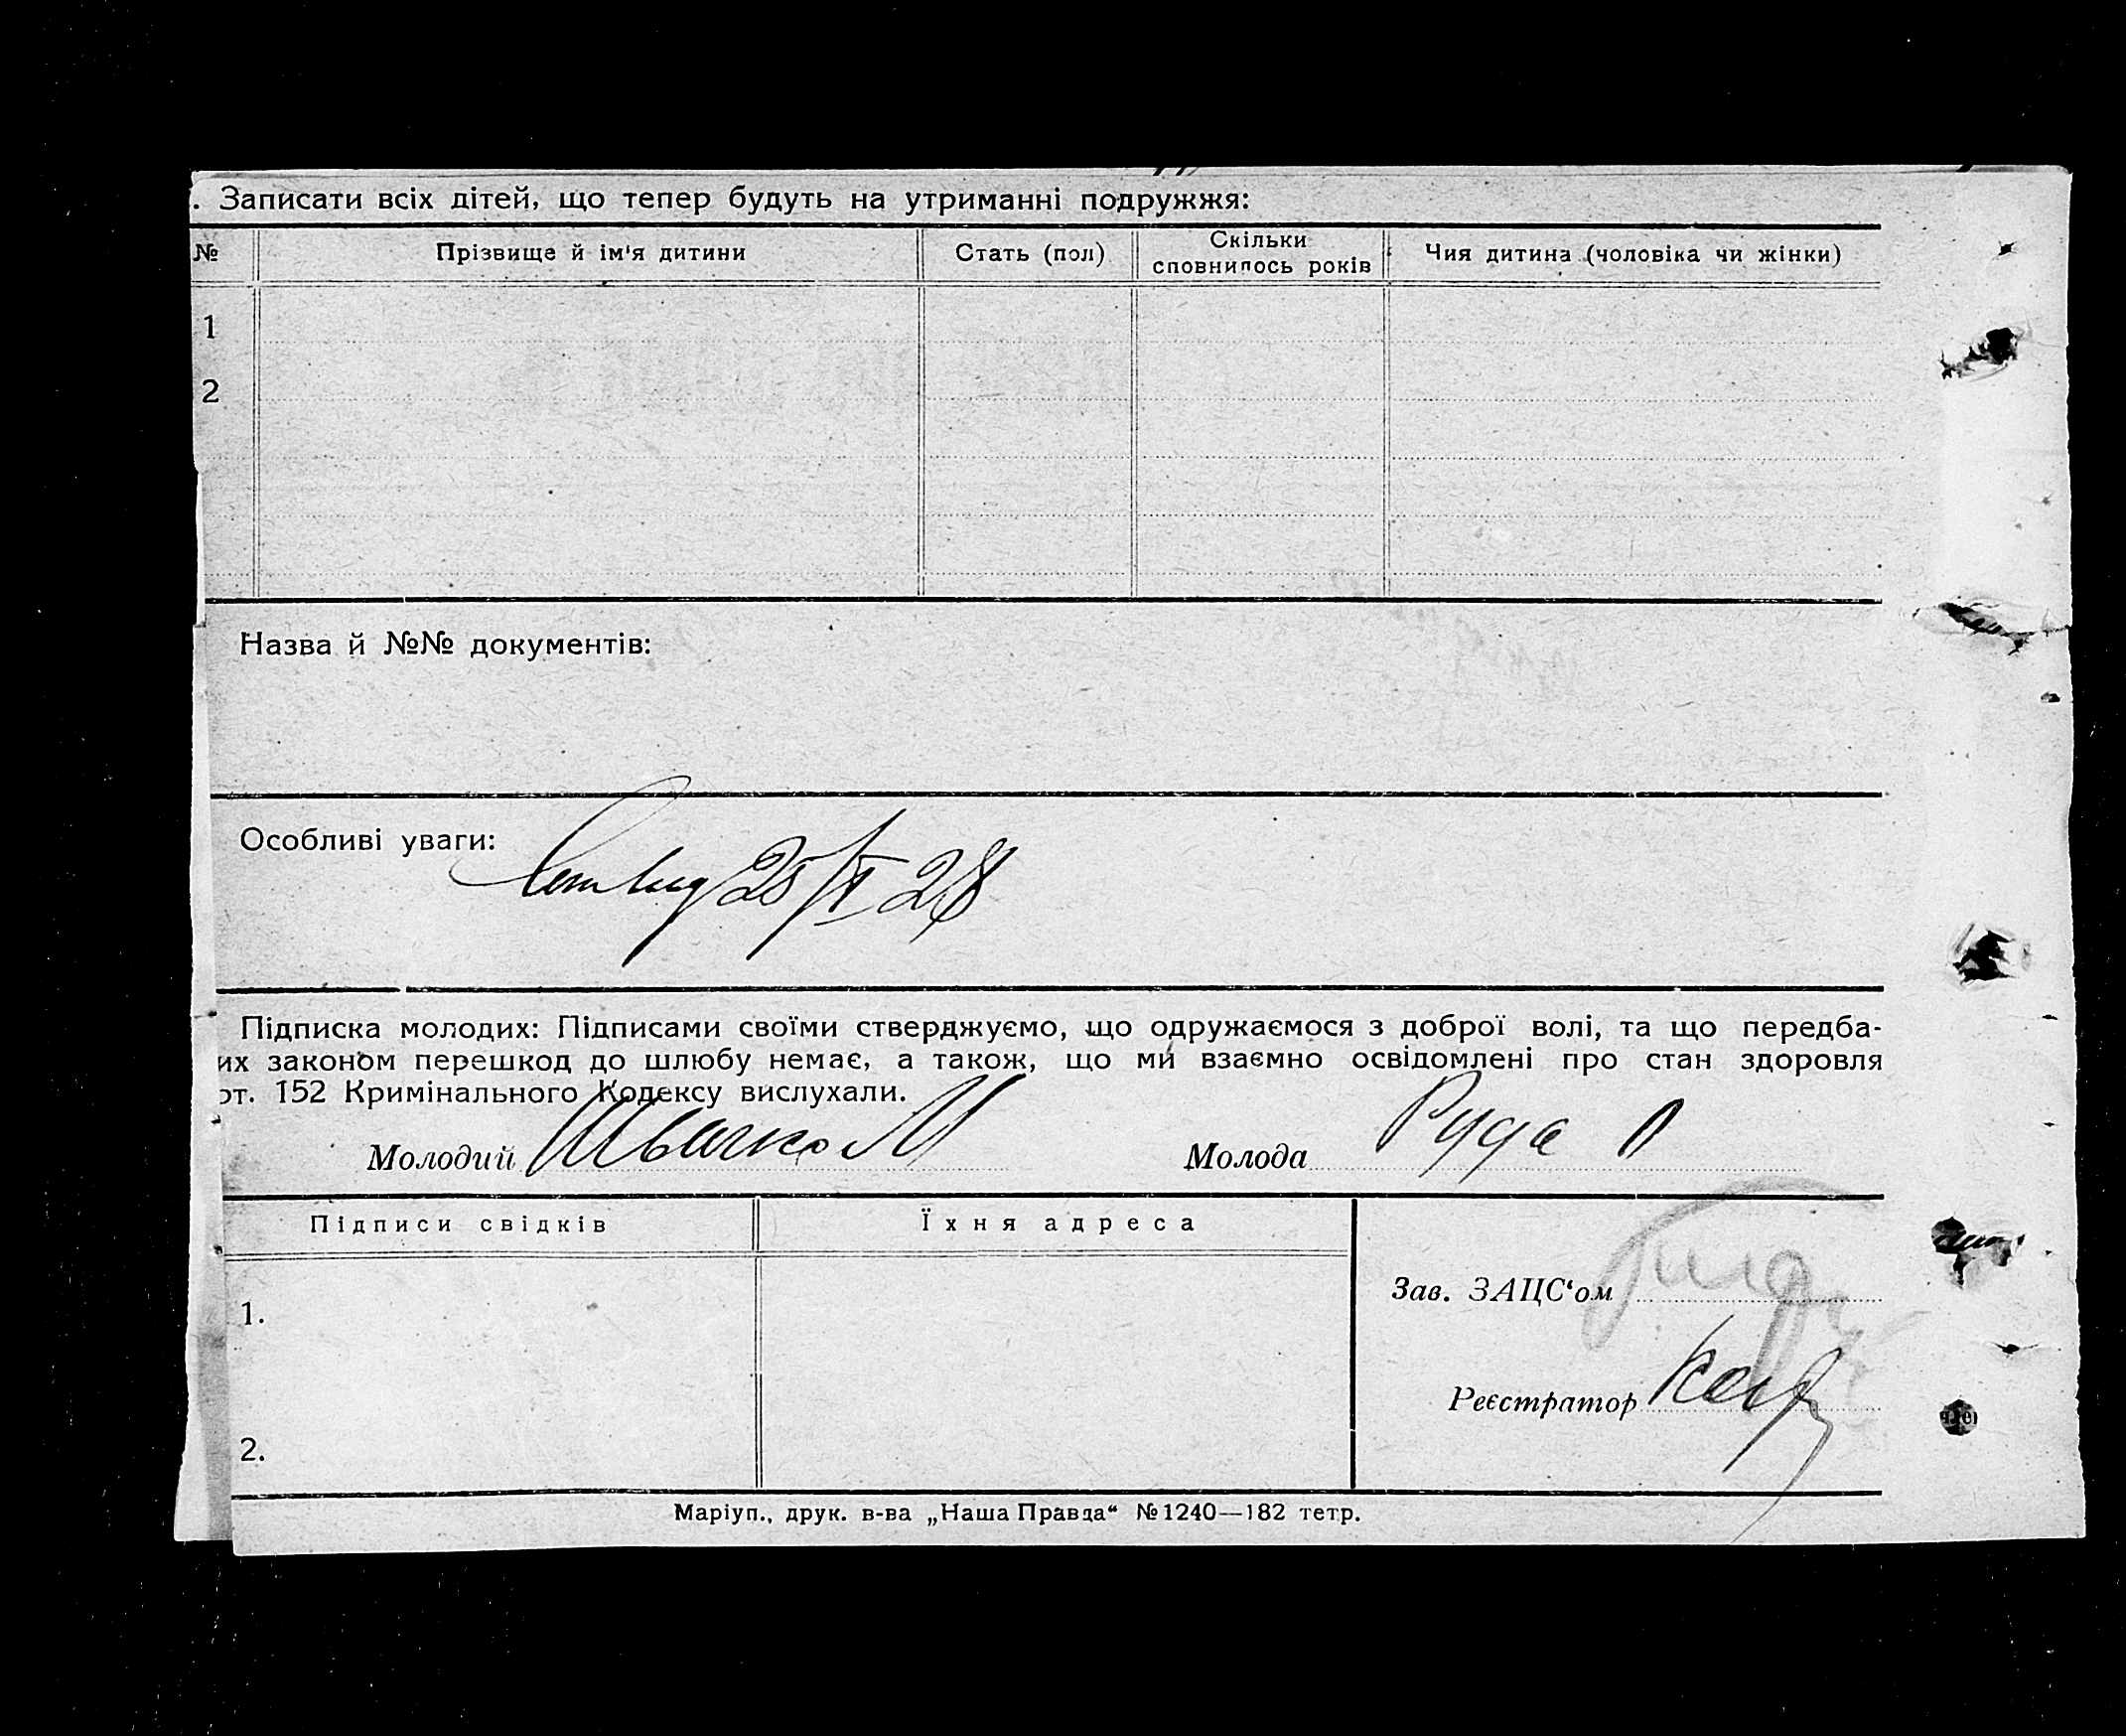 . Записати всіх дітей, що тепер будуть на утриманні подружжя:
№ Прізвище й ім'я дитини Стать (пол) Скільки сповнилось років Чия дитина (чоловіка чи жінки)
1
2
Назва й №№ документів:
Особливі уваги: 25/VI 28
Підписка молодих: Підписами своїми стверджуємо, що одружаємося з доброї волі, та що передба-
их законом перешкод до шлюбу немає, а також, що ми взаємно освідомлені про стан здоровля
от. 152 Кримінального Кодексу вислухали.
Молодий Швачко М Молода Руда П
Підписи свідків Їхня адреса
Зав. ЗАЦС'ом
1.
Реєстратор
2.
Маріуп., друк. в-ва „Наша Правда“ №1240—182 тетр.